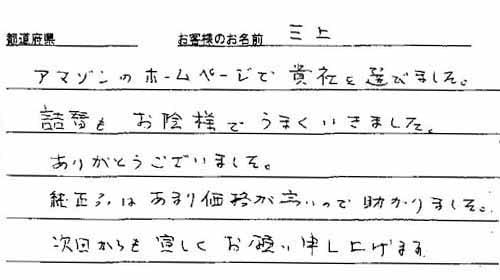 都道府県 お客様のお名前 三上
アマゾンのホームページで貴社を選びました。
詰替も お陰様で うまくいきました。
ありがとうございました。
純正品は あまり価格が高いので 助かりました。
次回からも 宜しく お願い申し上げます